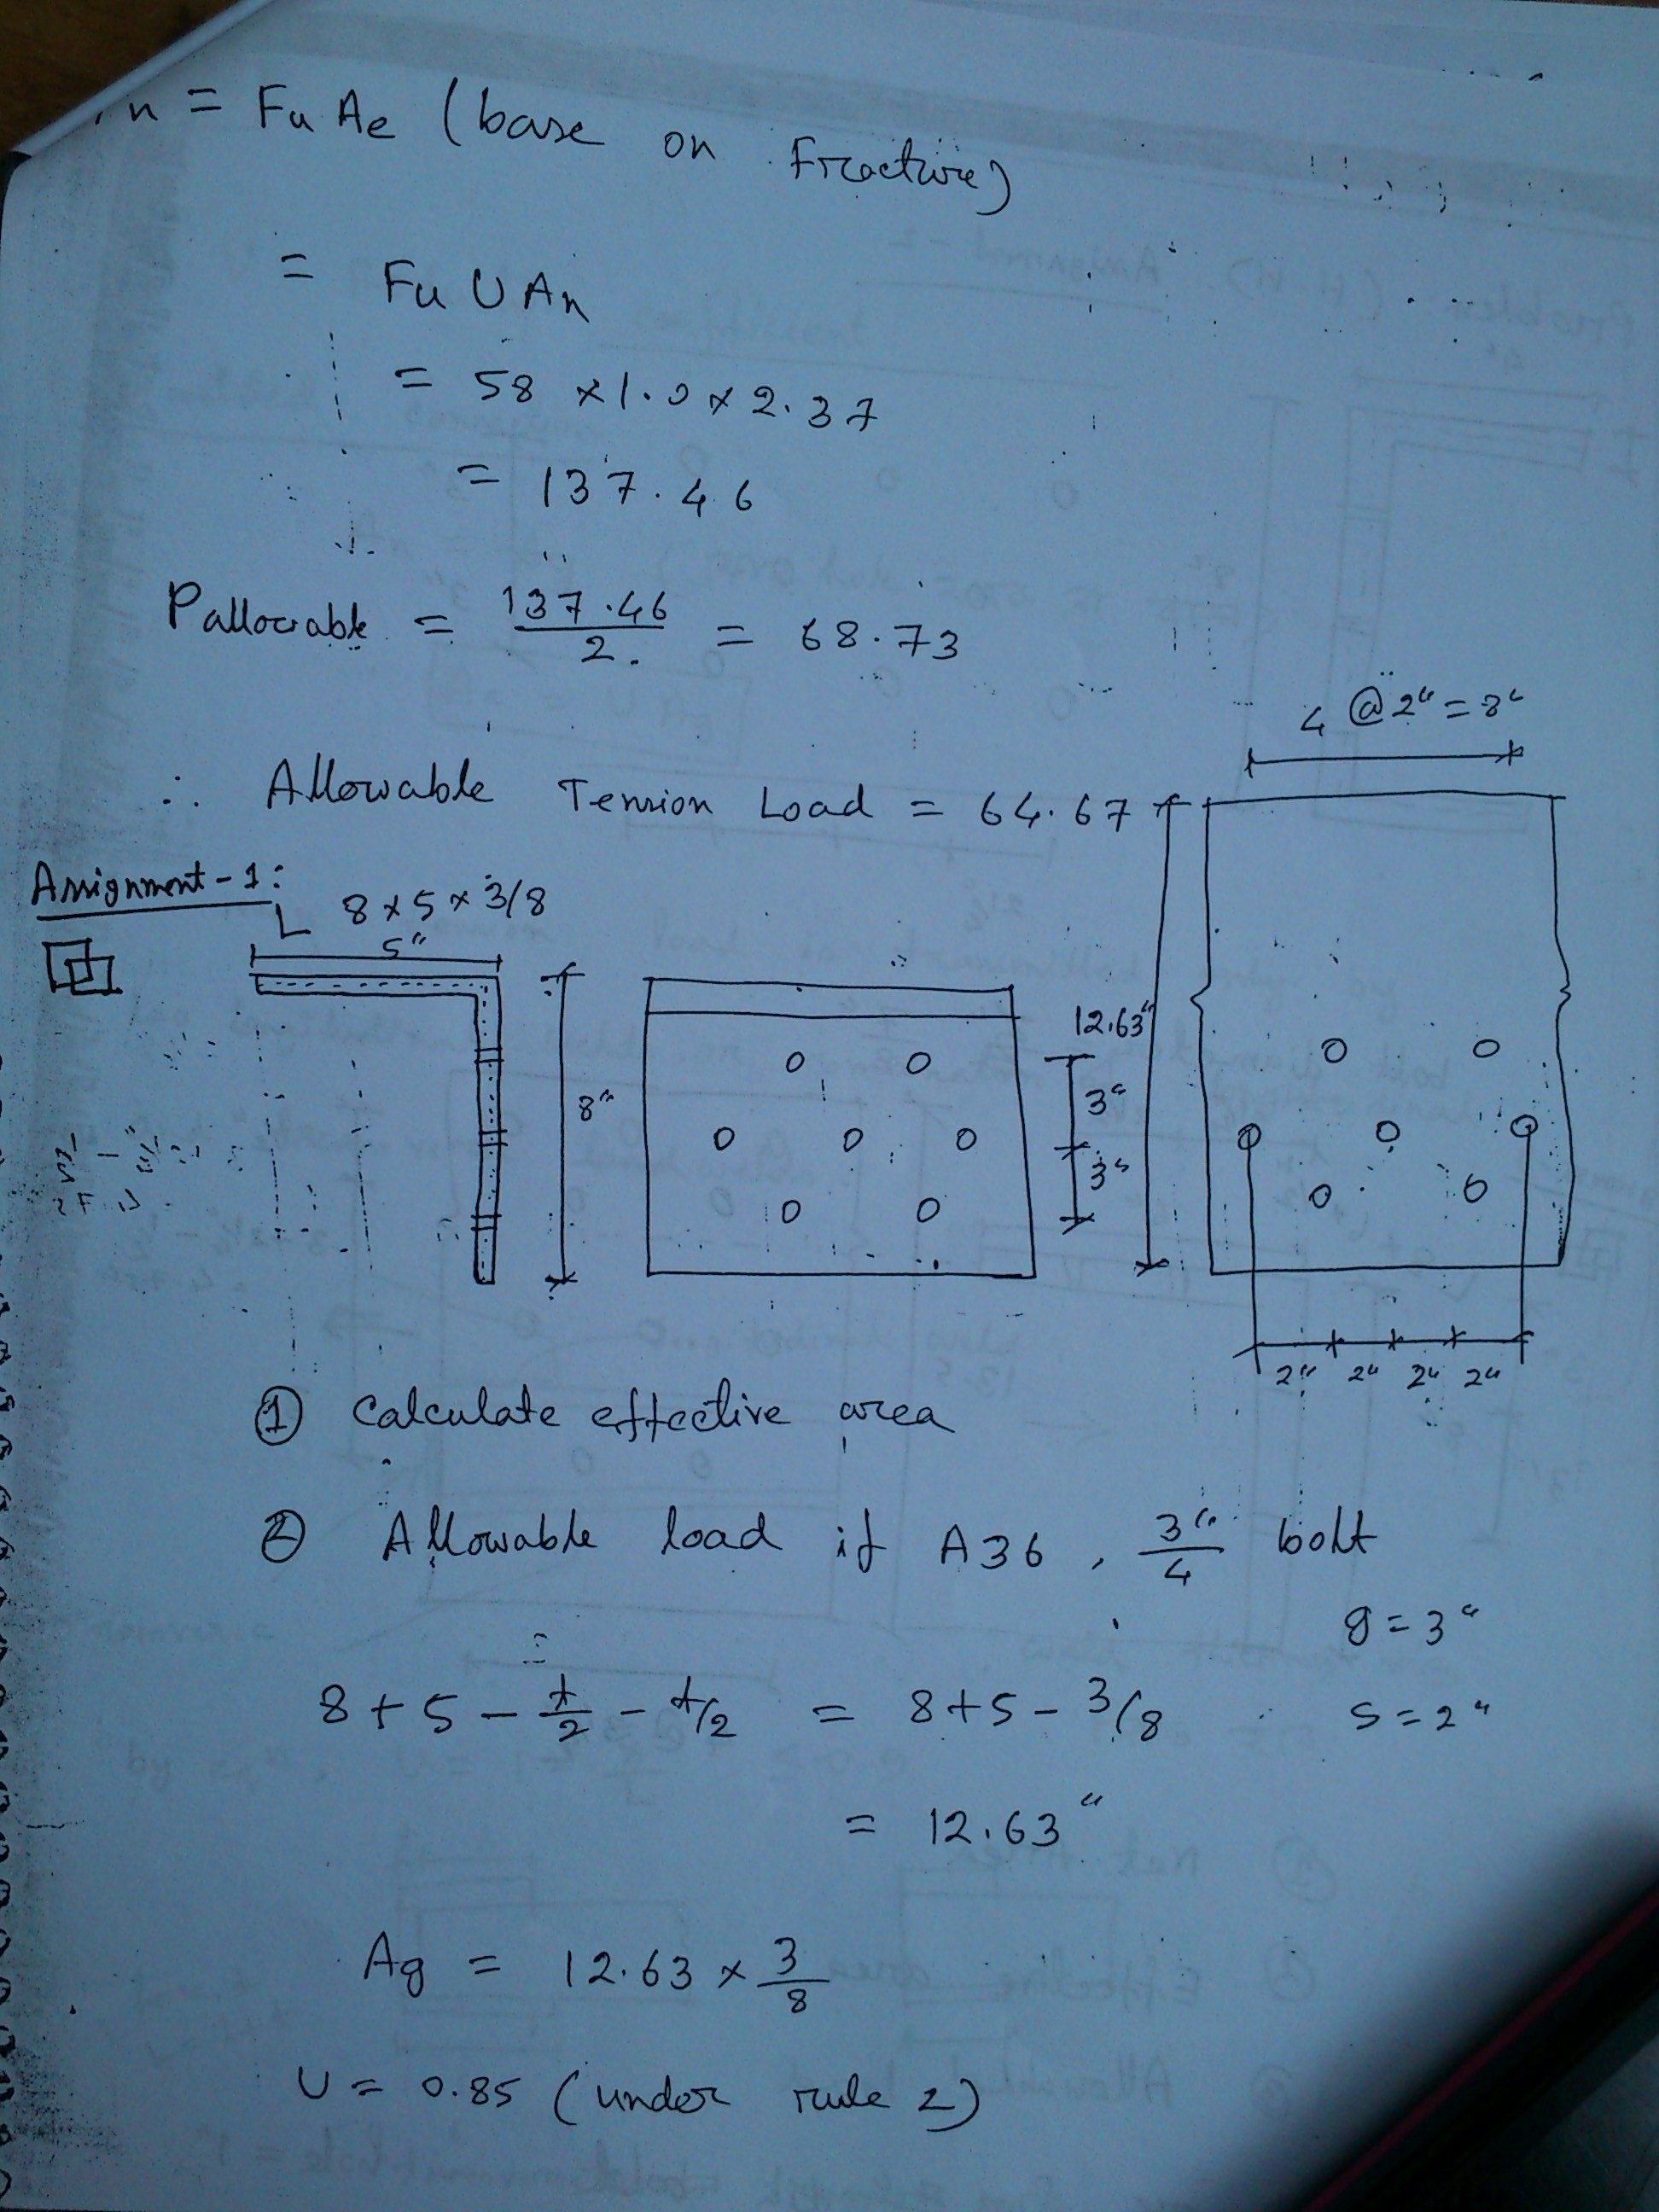 n = Fu Ae (base on Fracture)
= Fu U An
= 58 × 1.0 × 2.37
= 137.46
Pallowable = 137.46 / 2. = 68.73
4 @ 2" = 8"
∴ Allowable Tension Load = 64.67
Assignment-1:
L 8 × 5 × 3/8
5"
8"
12.63"
3"
3"
2" 2" 2" 2"
① Calculate effective area
② Allowable load if A36, 3/4" bolt
g = 3"
8 + 5 - t/2 - t/2 = 8 + 5 - 3/8
S = 2"
= 12.63"
Ag = 12.63 × 3/8
U = 0.85 (under rule 2)